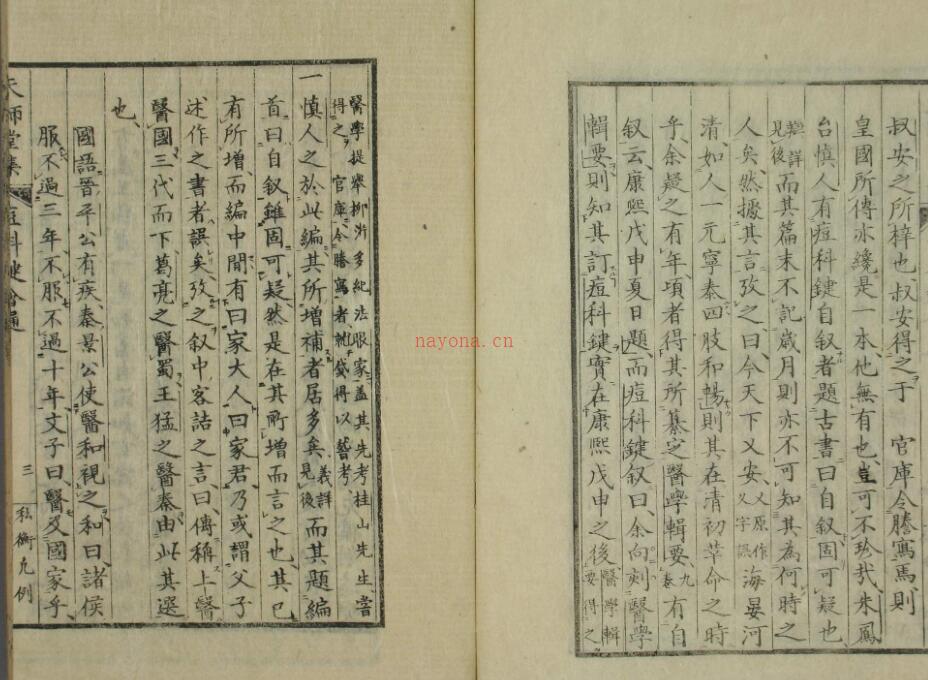 叔安之所梓也、叔安得之于　官庫令謄寫焉則
皇國所傳冰纔是一本、他無有也、豈可不珍哉、朱鳳
台慎人有痘科鍵自叙者題古書曰自叙固可疑也
辨詳見後而其篇末不記歳月則亦不可知其為何時之
人矣、然據其言攷之、曰今天下乂安、乂原作又字誤海晏河
清、如人一元寧泰四肢和暢、則其在清初革命之時
乎、余疑之有年、項者得其所纂定醫學輯要、九泰有自
叙云、康熙戊申夏日題、而痘科鍵叙曰、余向刻醫學
輯要、則知其訂痘科鍵實在康熙戊申之後醫學輯要得之
醫學提舉柳沜多紀法眼家蓋其先考桂山先生嘗得之官庫、令謄寫者就賤得以謄考
一慎人之於此編其所增補者居多矣義詳見後而其題編
首曰自叙雖固可疑然是在其所增而言之也、其已
有所增、而編中間有曰家大人曰家君乃或謂父子
述作之書者、誤矣、攷之叙中客詰之言、曰傳稱上醫
醫國三代而下葛亮之醫蜀、王猛之醫秦由此其選
也、
國語晉平公有疾、秦景公使醫和視之和曰、諸侯
服不過三年、不服不過十年、文子曰、醫及國家乎
天師堂集 痘科鍵會通
三
私衡凡例
nayona.cn